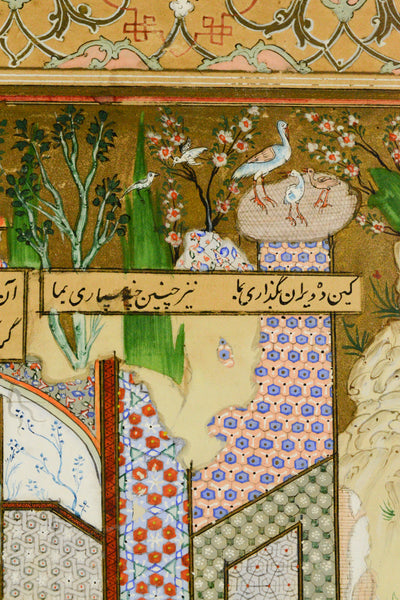 کین ده ویران بگذاری بما نیز چنین چند سپاری بما
آن
گر